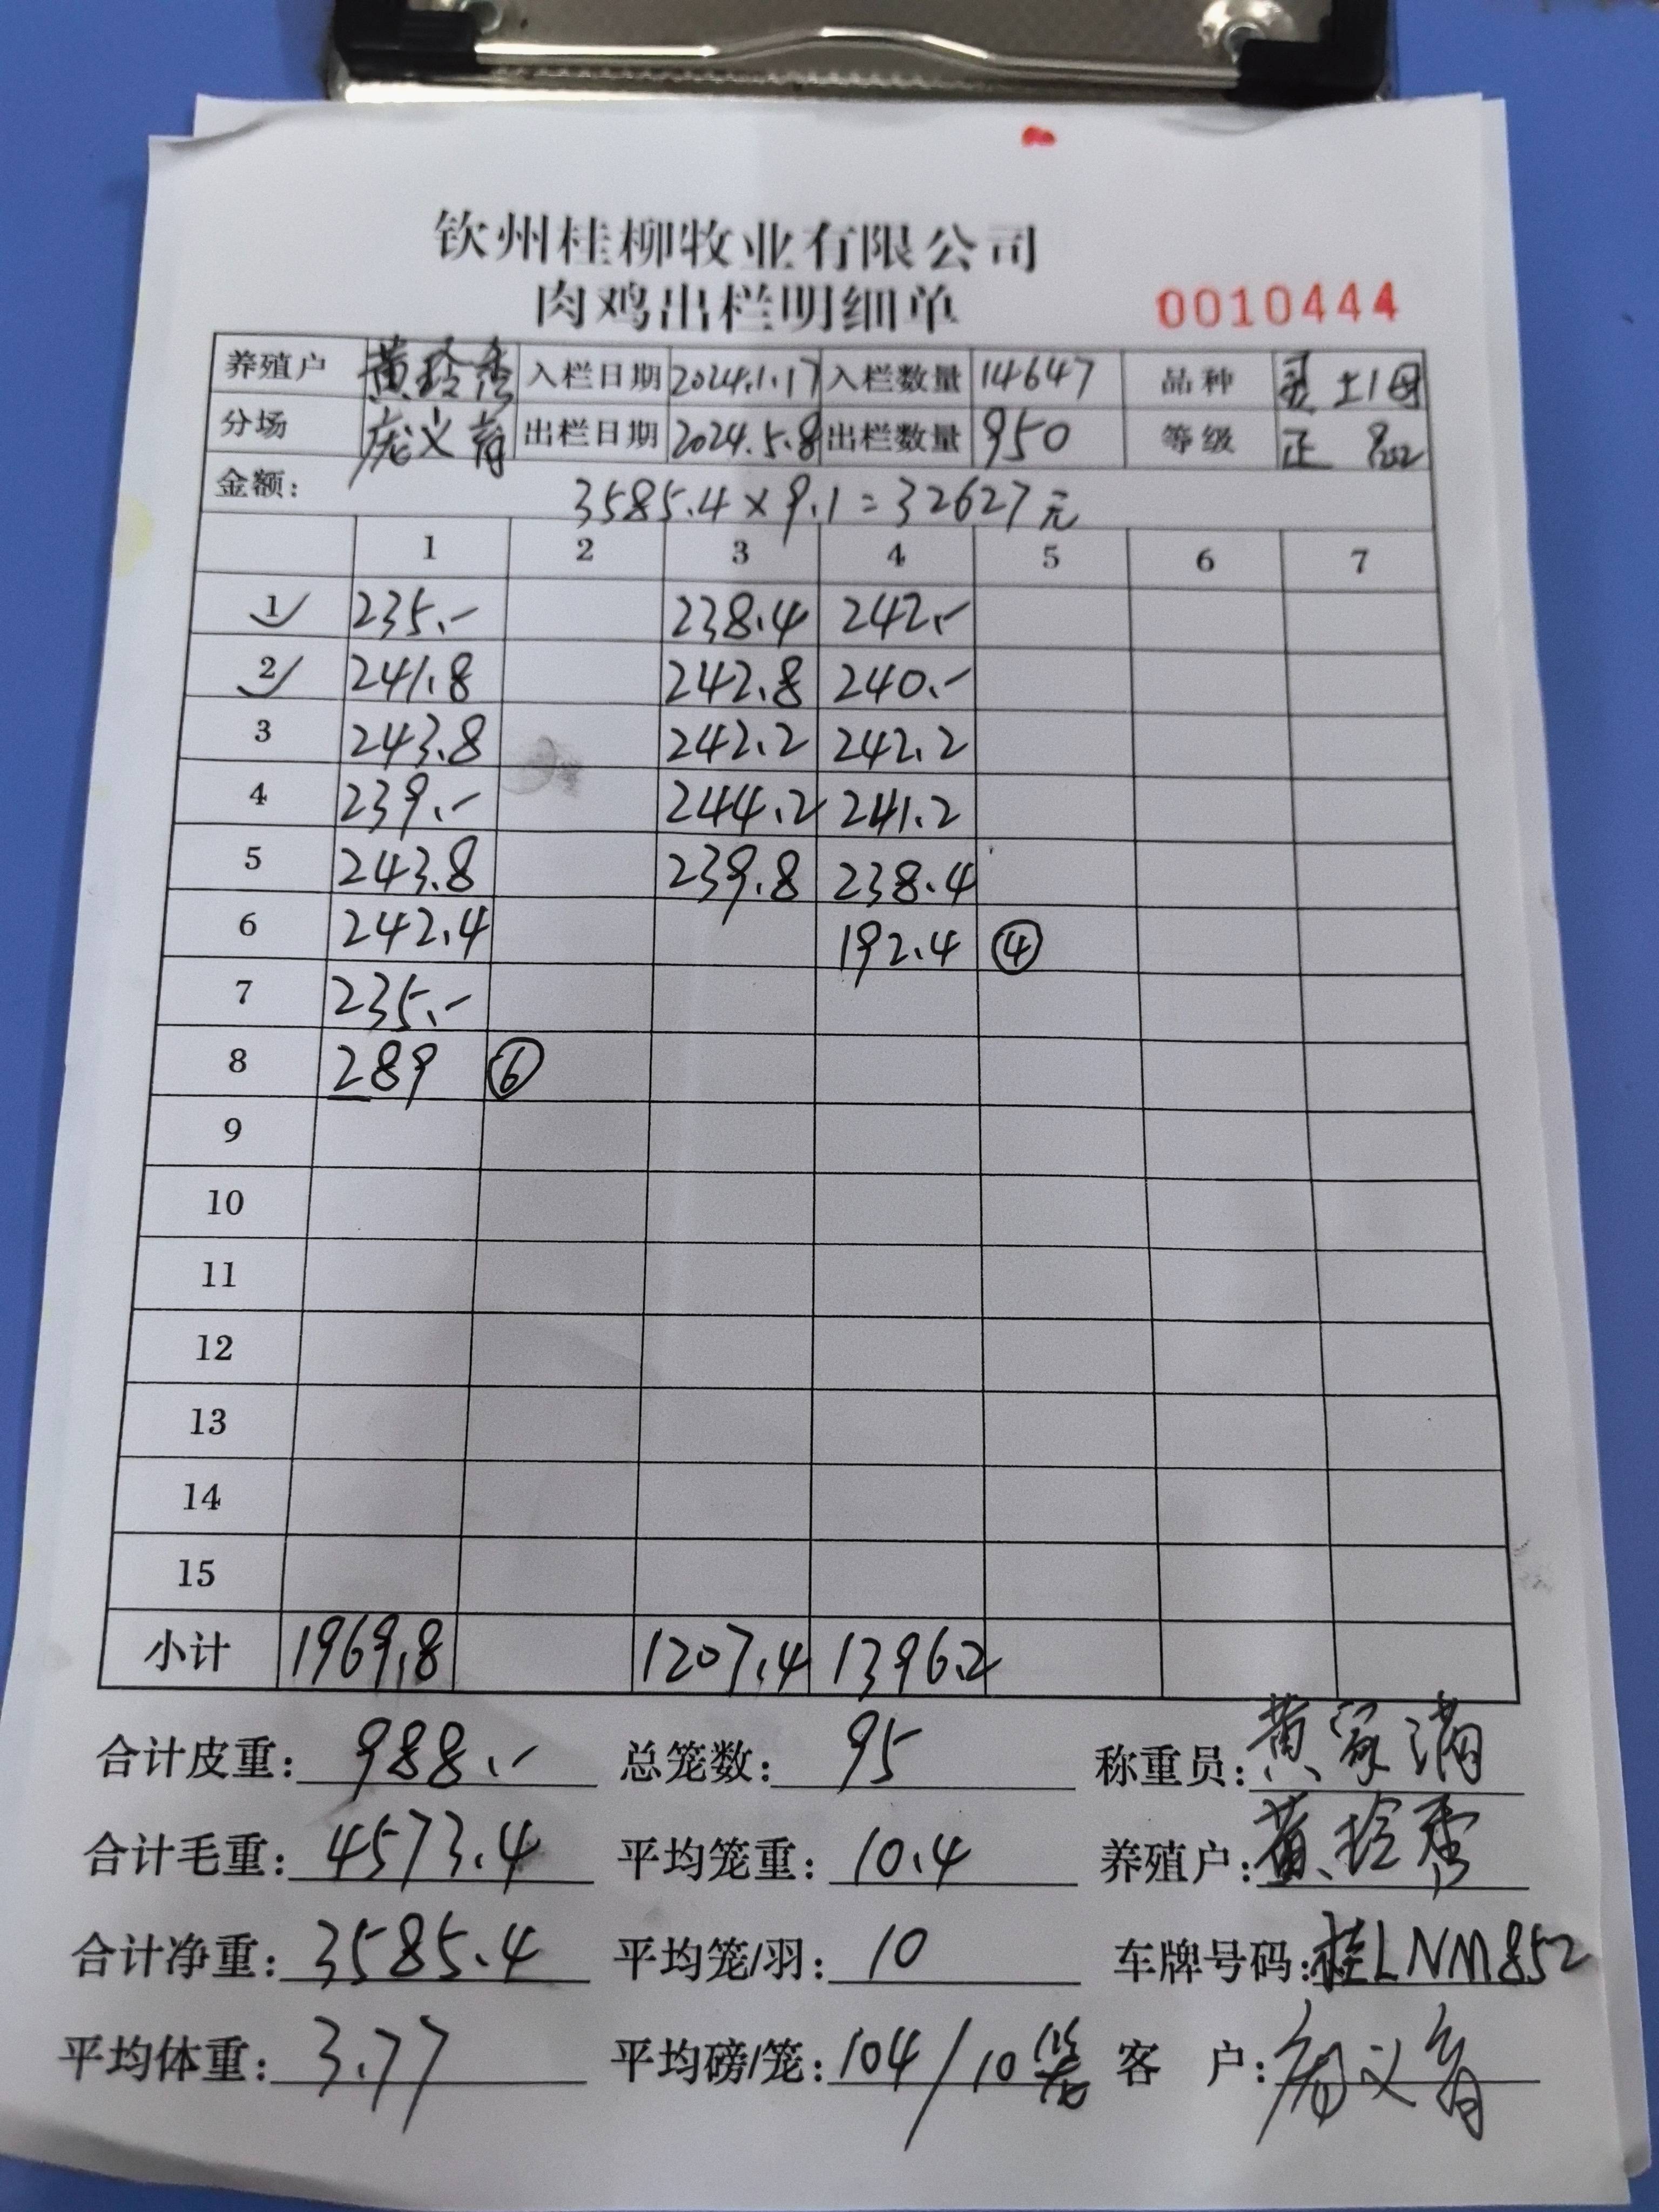 钦州桂柳牧业有限公司
肉鸡出栏明细单 0010444
养殖户 黄玲秀 入栏日期 2024.1.17 入栏数量 14647 品种 土1母
分场 庞义育 出栏日期 2024.5.8 出栏数量 950 等级 正
金额: 3585.4×9.1=32627元
1 2 3 4 5 6 7
1 235.- 238.4 242.-
2 241.8 242.8 240.-
3 243.8 242.2 242.2
4 239.- 244.2 241.2
5 243.8 239.8 238.4
6 242.4 192.4 ④
7 235.-
8 289 ⑥
9
10
11
12
13
14
15
小计 1969.8 1207.4 1396.2
合计皮重: 988.- 总笼数: 95 称重员: 黄家满
合计毛重: 4573.4 平均笼重: 10.4 养殖户: 黄玲秀
合计净重: 3585.4 平均笼/羽: 10 车牌号码: 桂LNM852
平均体重: 3.77 平均磅/笼: 104/10笼 客 户: 庞义育